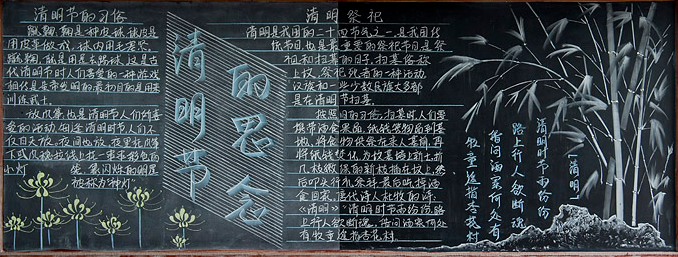 清明节的习俗
蹴鞠,鞠是一种皮球,球皮是
用皮革做成,球内用毛塞紧。
蹴鞠,就是用足去踢球。这是古
代清明节时人们喜爱的一种游戏
相传是黄帝发明的,最初目的是用来
训练武士。
放风筝,也是清明节人们所喜
爱的活动。每逢清明时节,人们不
仅白天放,夜间也放。夜里在风筝
下或风稳拉线上挂一串串彩色的
小灯
象闪烁的明星
被称为"神灯"
清明节
的思念
清明祭祀
清明是我国的二十四节气之一,是我国传
统节日,也是最重要的祭祀节日,是祭
祖和扫墓的日子。扫墓俗称
上坟,祭祀死者的一种活动。
汉族和一些少数民族大多都
是在清明节扫墓。
按照旧的习俗,扫墓时,人们要
携带酒食果品、纸钱等物品到墓
地,将食物供祭在亲人墓前,再
将纸钱焚化,为坟墓培上新土,折
几枝嫩绿的新枝插在坟上,然
后叩头行礼祭拜,最后吃掉酒
食回家。唐代诗人杜牧的诗
《清明》:"清明时节雨纷纷,路
上行人欲断魂。借问酒家何处
有?牧童遥指杏花村。
「清明」
清明时节雨纷纷
路上行人欲断魂
借问酒家何处有
牧童遥指杏花村